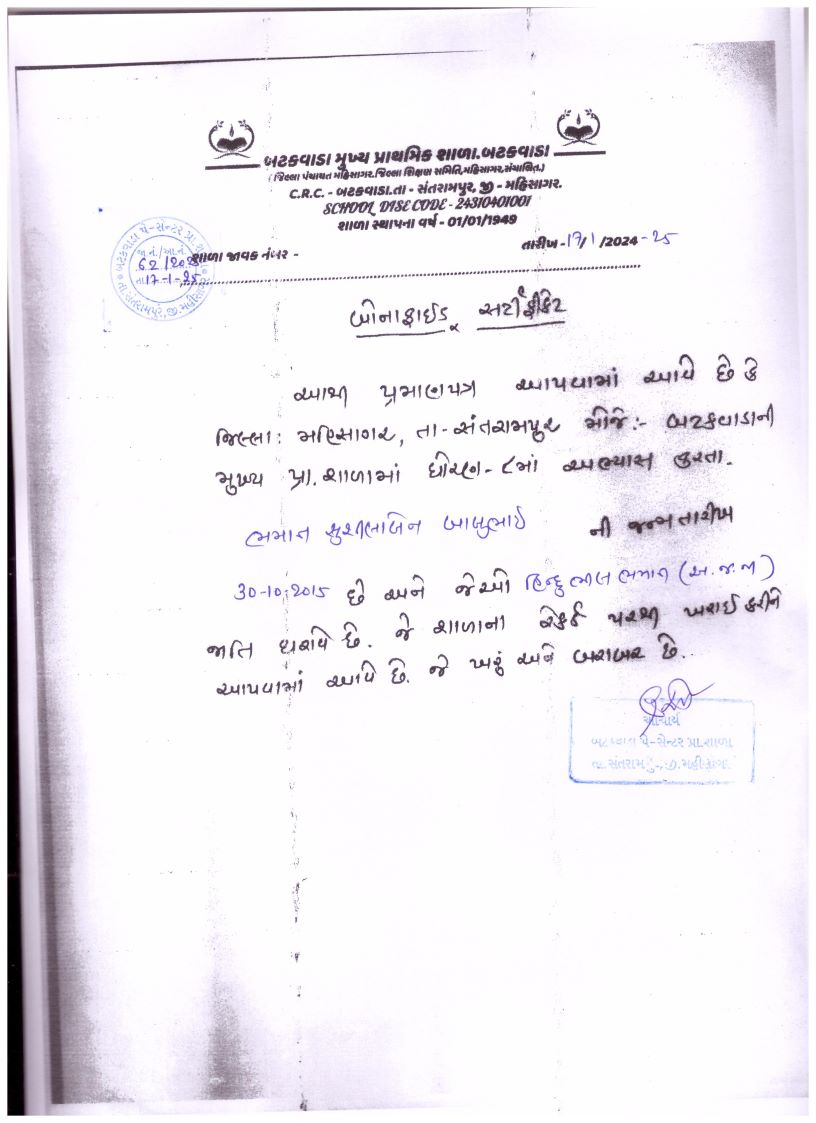 બટકવાડા મુખ્ય પ્રાથમિક શાળા.બટકવાડા
(જિલ્લા પંચાયત મહિસાગર.જિલ્લા શિક્ષણ સમિતિ,મહિસાગર,સંચાલિત.)
C.R.C. - બટકવાડા.તા - સંતરામપુર, જી - મહિસાગર.
SCHOOL DISE CODE - 24310401001
શાળા સ્થાપના વર્ષ - 01/01/1949
તારીખ - 17/1 /2024 - 25
બટકવાડા પે-સેન્ટર પ્રા.શાળા
જા.નં./આ.નં.
62/2025
તા.17-1-25
તા.સંતરામપુર,જી.મહીસાગર
શાળા જાવક નંબર -
બોનાફાઈડ સર્ટીફીકેટ
આથી પ્રમાણપત્ર આપવામાં આવે છે કે
જિલ્લા: મહિસાગર, તા-સંતરામપુર મોજે:- બટકવાડાની
મુખ્ય પ્રા. શાળામાં ધોરણ- ૮માં અભ્યાસ કરતા.
ભમાત સુશીલાબેન બાબુભાઈ ની જન્મ તારીખ
30-10-2015 છે અને જેઓ હિન્દુ ભીલ ભમાત (અ.જ.જા)
જાતિ ધરાવે છે. જે શાળાના રેકર્ડ પરથી ખરાઈ કરીને
આપવામાં આવે છે. જે ખરું અને બરાબર છે.
આચાર્ય
બટકવાડા પે-સેન્ટર પ્રા.શાળા
તા.સંતરામપુર,જી.મહીસાગર